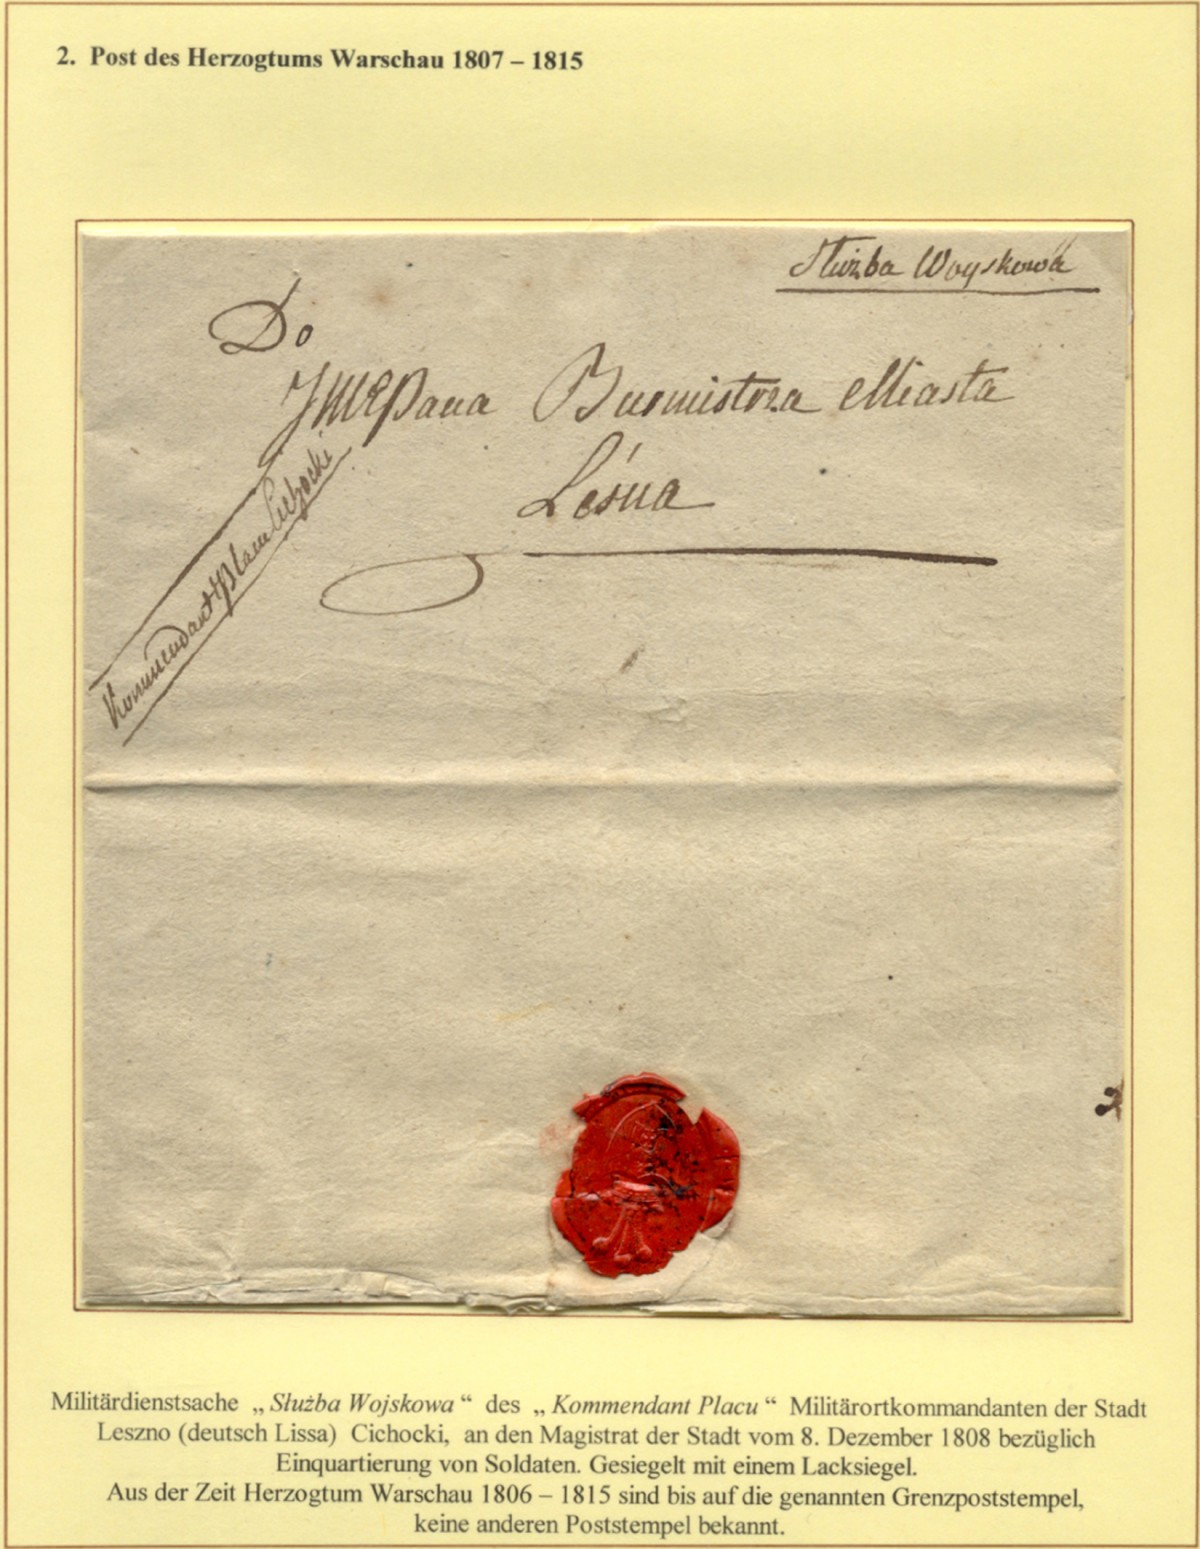 2. Post des Herzogtums Warschau 1807 – 1815
Służba Woyskowa
Do
JMCPana Burmistrza Miasta
Leśna
Kommendant Placu Cichocki
Militärdienstsache „ Służba Wojskowa “ des „ Kommendant Placu “ Militärortkommandanten der Stadt
Leszno (deutsch Lissa) Cichocki, an den Magistrat der Stadt vom 8. Dezember 1808 bezüglich
Einquartierung von Soldaten. Gesiegelt mit einem Lacksiegel.
Aus der Zeit Herzogtum Warschau 1806 – 1815 sind bis auf die genannten Grenzpoststempel,
keine anderen Poststempel bekannt.